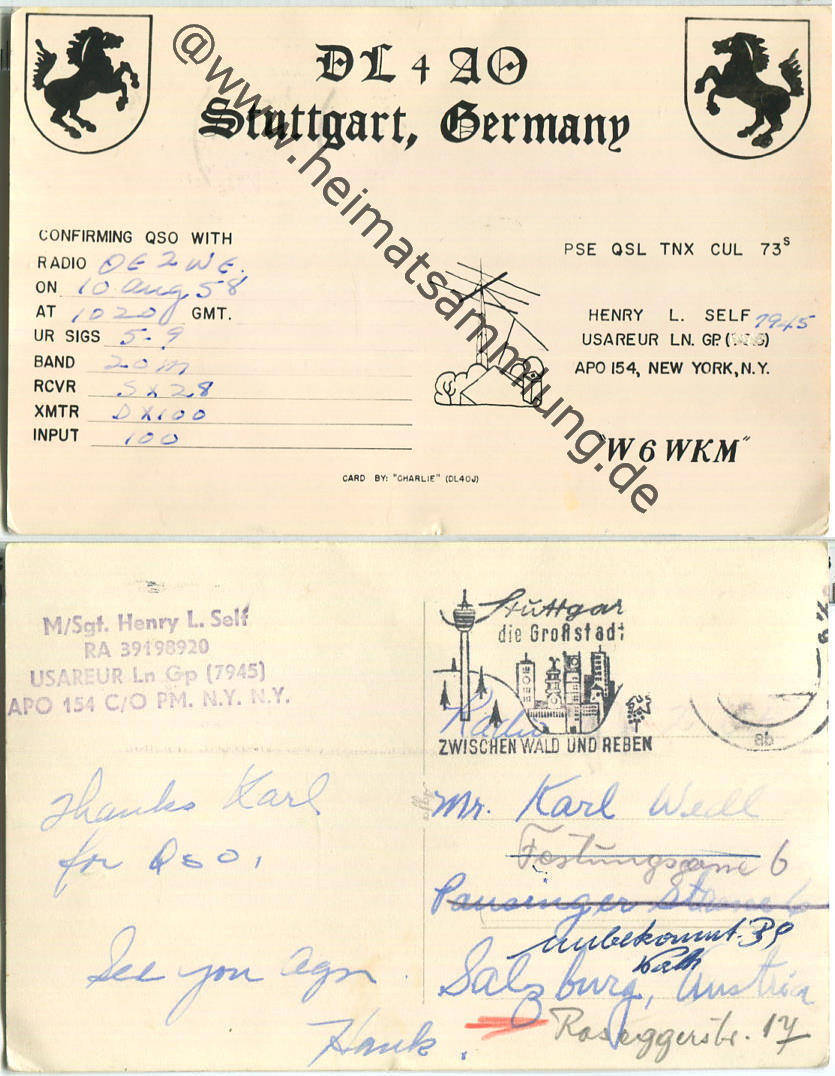 DL 4 AO
Stuttgart, Germany
CONFIRMING QSO WITH
RADIO OE2WE.
ON 10 Aug 58
AT 1020 GMT.
UR SIGS 5-9
BAND 20m
RCVR SX28
XMTR DX100
INPUT 100
PSE QSL TNX CUL 73s
HENRY L. SELF
7945
USAREUR LN. GP.
APO 154, NEW YORK, N.Y.
"W6WKM"
CARD BY: "CHARLIE" (DL4OJ)
@www.heimatsammlung.de
M/Sgt. Henry L. Self
RA 39198920
USAREUR Ln Gp (7945)
APO 154 C/O PM. N.Y. N.Y.
Stuttgar
die Großstadt
ZWISCHEN WALD UND REBEN
ab
Thanks Karl
for QSO,
See you agn.
Hank.
Radio
Mr. Karl Wedl
Festungsgasse 6
Pausinger
unbekannt
Salzburg, Austria
Roseggerstr. 17